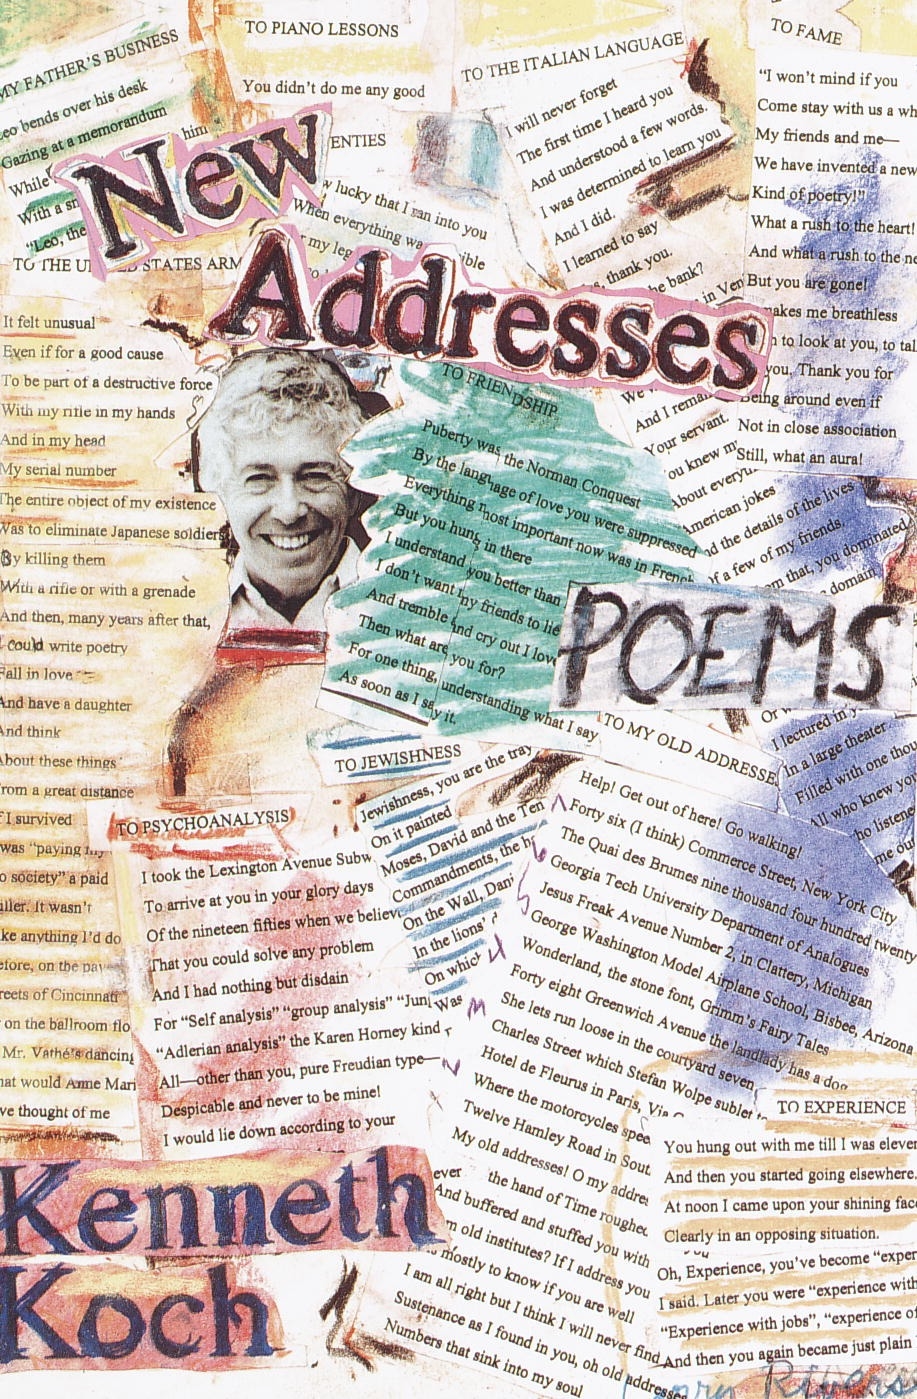 TO PIANO LESSONS
You didn't do me any good
MY FATHER'S BUSINESS
Leo bends over his desk
Gazing at a memorandum
While him
With a
"Leo, the
New
Addresses
POEMS
ENTIES
lucky that I ran into you
When everything
my leg ible
TO THE ITALIAN LANGUAGE
I will never forget
The first time I heard you
And understood a few words.
I was determined to learn you
And I did.
I learned to say
thank you.
he bank?
in Ven
TO FAME
"I won't mind if you
Come stay with us a wh
My friends and me—
We have invented a new
Kind of poetry!"
What a rush to the heart!
And what a rush to the ne
But you are gone!
makes me breathless
to look at you, to tal
you. Thank you for
Being around even if
Not in close association
Still, what an aura!
TO THE UNITED STATES ARM
It felt unusual
Even if for a good cause
To be part of a destructive force
With my rifle in my hands
And in my head
My serial number
The entire object of my existence
Was to eliminate Japanese soldiers
By killing them
With a rifle or with a grenade
And then, many years after that,
I could write poetry
Fall in love
And have a daughter
And think
About these things
From a great distance
If I survived
was "paying my
o society" a paid
iller. It wasn't
ke anything I'd do
efore, on the pav
reets of Cincinnati
on the ballroom flo
Mr. Vathé's dancing
hat would Anne Mari
ve thought of me
TO FRIENDSHIP
Puberty was the Norman Conquest
By the language of love you were suppressed
Everything most important now was in French
But you hung in there
I understand you better than
I don't want my friends to lie
And tremble and cry out I love
Then what are you for?
For one thing, understanding what I say
As soon as I say it.
And I remai
Your servant.
ou knew m
About everyth
American jokes
nd the details of the lives
f a few of my friends.
om that, you dominated
domain.
I lectured in
In a large theater
Filled with one thou
All who knew you
ho listene
me ou
TO JEWISHNESS
Jewishness, you are the tray
On it painted
Moses, David and the Ten
Commandments, the
On the Wall, Dan
In the lions'
On which
Was
TO PSYCHOANALYSIS
I took the Lexington Avenue Subw
To arrive at you in your glory days
Of the nineteen fifties when we believ
That you could solve any problem
And I had nothing but disdain
For "Self analysis" "group analysis" "Jung
"Adlerian analysis" the Karen Horney kind
All—other than you, pure Freudian type—
Despicable and never to be mine!
I would lie down according to your
TO MY OLD ADDRESSE
Help! Get out of here! Go walking!
Forty six (I think) Commerce Street, New York City
The Quai des Brumes nine thousand four hundred twenty
Georgia Tech University Department of Analogues
Jesus Freak Avenue Number 2, in Clattery, Michigan
George Washington Model Airplane School, Bisbee, Arizona
Wonderland, the stone font, Grimm's Fairy Tales
Forty eight Greenwich Avenue the landlady has a dog
She lets run loose in the courtyard seven
Charles Street which Stefan Wolpe sublet
Hotel de Fleurus in Paris, Via
Where the motorcycles spee
Twelve Hamley Road in Sout
My old addresses! O my addre
ever the hand of Time roughe
And buffered and stuffed you with
m old institutes? If I address you
mostly to know if you are well
I am all right but I think I will never find
Sustenance as I found in you, oh old addresses
Numbers that sink into my soul
TO EXPERIENCE
You hung out with me till I was eleven
And then you started going elsewhere.
At noon I came upon your shining fac
Clearly in an opposing situation.
Oh, Experience, you've become "exper
I said. Later you were "experience with
"Experience with jobs", "experience of
And then you again became just plain
Kenneth
Koch
Larry Rivers